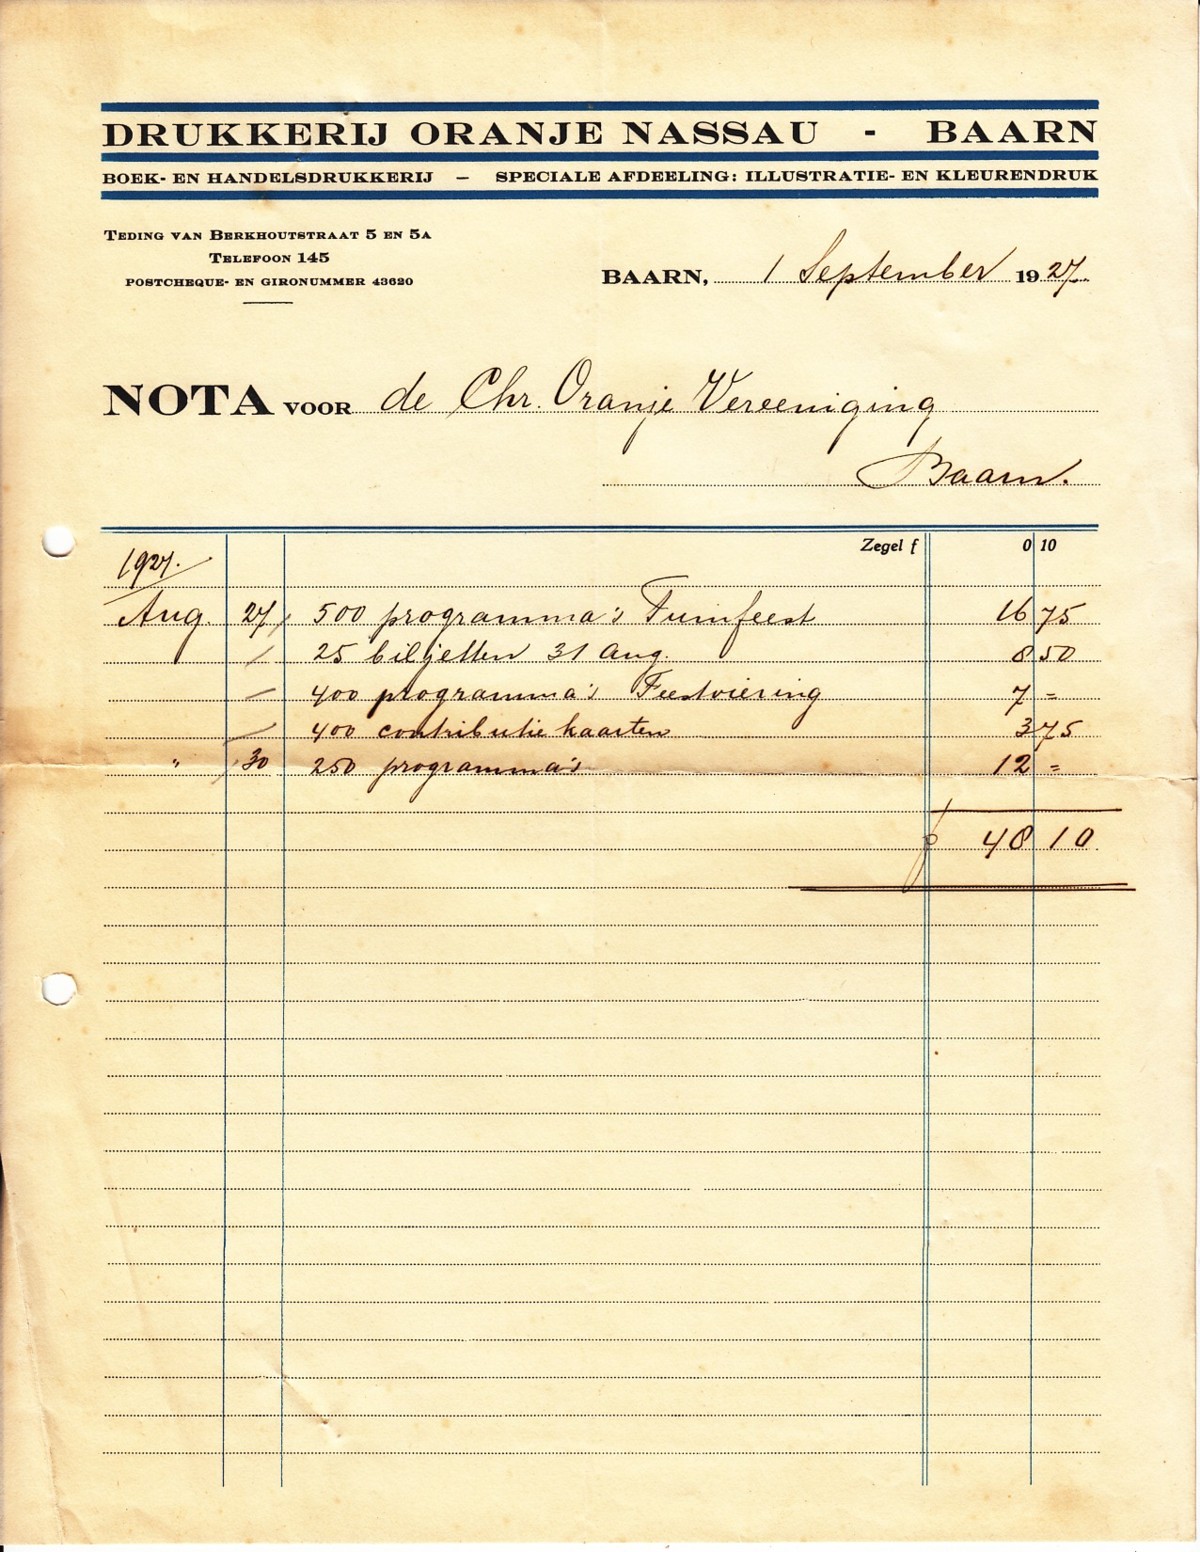 DRUKKERIJ ORANJE NASSAU - BAARN
BOEK- EN HANDELSDRUKKERIJ — SPECIALE AFDEELING: ILLUSTRATIE- EN KLEURENDRUK
TEDING VAN BERKHOUTSTRAAT 5 EN 5A
TELEFOON 145
POSTCHEQUE- EN GIRONUMMER 43620
BAARN, 1 September 1927.
NOTA VOOR de Chr. Oranje Vereeniging
Baarn.
Zegel f 0 10
1927.
Aug. 27 500 programma's Tuinfeest 16 75
25 biljetten 31 Aug. 8 50
400 programma's Feestviering 7 =
400 contributie kaarten 3 75
" 30 250 programma's 12 =
f 48 10